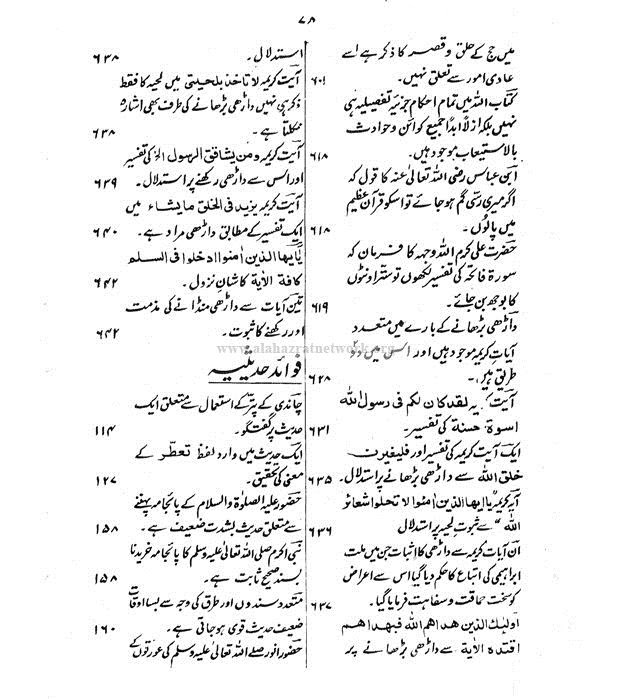 ۷۸
میں حج کے حلق و قصر کا ذکر ہے اسے
عادی امور سے تعلق نہیں۔ ۶۰۱
کتاب اللہ میں تمام احکام جزئیہ تفصیلیہ ہی
نہیں بلکہ ازلاً ابداً جمیع کوائن و حوادث
بالاستیعاب موجود ہیں۔ ۶۱۸
ابن عباس رضی اللہ تعالٰی عنہ کا قول کہ
اگر میری رسّی گم ہو جائے تو اسکو قرآن عظیم
میں پالُوں۔ ۶۱۸
حضرت علی کرم اللہ وجہہ کا فرمان کہ
سورۃ فاتحہ کی تفسیر لکھوں تو ستّر اونٹوں
کا بوجھ بن جائے۔ ۶۱۹
داڑھی بڑھانے کے بارے میں متعدد
آیاتِ کریمہ موجود ہیں اور اس میں دو۲
طریق ہیں۔ ۶۲۸
آیت کریمہ لقد کان لکم فی رسول اللہ
اسوۃ حسنۃ کی تفسیر۔ ۶۳۱
ایک آیت کریمہ کی تفسیر اور فلیغیرن
خلق اللہ سے داڑھی بڑھانے پر استدلال۔ ۶۳۵
آیہ کریمہ یا ایھا الذین امنوا لا تحلوا شعائر
اللہ" سے ثبوتِ لحیہ پر استدلال ۶۳۶
ان آیات کریمہ سے داڑھی کا اثبات جن میں ملت
ابراہیمی کی اتباع کا حکم دیا گیا اس سے اعراض
کو سخت حماقت و سفاہت فرمایا گیا۔ ۶۳۷
اولٰئک الذین ھداھم اللہ فبھداھم
اقتدہ الاٰیۃ سے داڑھی بڑھانے پر
استدلال۔ ۶۳۸
آیت کریمہ لا تاخذ بلحیتی میں لحیہ کا فقط
ذکر ہی نہیں داڑھی بڑھانے کی طرف بھی اشارہ
نکلتا ہے۔ ۶۳۸
آیت کریمہ ومن یشاقق الرسول الخ کی تفسیر
اور اس سے داڑھی رکھنے پر استدلال۔ ۶۳۹
آیت کریمہ یزید فی الخلق ما یشاء میں
ایک تفسیر کے مطابق داڑھی مراد ہے۔ ۶۴۰
یٰایھا الذین اٰمنوا ادخلوا فی السلم
کافۃ الاٰیۃ کا شانِ نزول۔ ۶۴۲
تین آیات سے داڑھی منڈانے کی مذمت
اور رکھنے کا ثبوت۔ ۶۴۲
www.alahazratnetwork.org
فوائد حدیثیہ
چاندی کے پتر کے استعمال سے متعلق ایک
حدیث پر گفتگو۔ ۱۱۴
ایک حدیث میں وارد لفظ تعطر کے
معنی کی تحقیق۔ ۱۲۷
حضور علیہ الصلوٰۃ والسلام کے پائجامہ پہننے
سے متعلق حدیث بشدت ضعیف ہے۔ ۱۵۸
نبی اکرم صلی اللہ تعالٰی علیہ وسلم کا پائجامہ خریدنا
بسند صحیح ثابت ہے۔ ۱۵۸
متعدد سندوں اور طرق کی وجہ سے بسا اوقات
ضعیف حدیث قوی ہو جاتی ہے۔ ۱۶۰
حضور انور صلے اللہ تعالٰی علیہ وسلم کی عورتوں کے